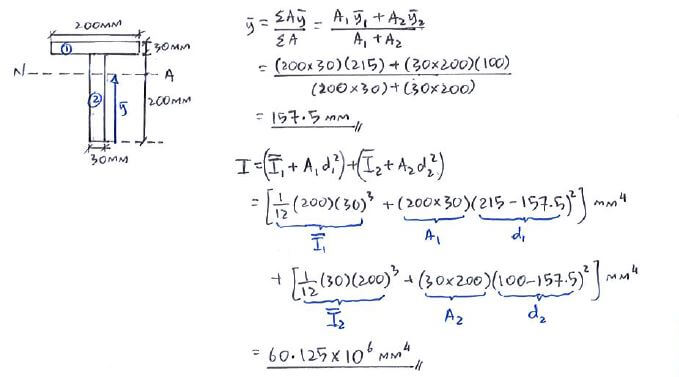 200MM
①
30MM
N
A
②
ȳ
200MM
30MM
ȳ = ΣAȳ / ΣA = A₁ȳ₁ + A₂ȳ₂ / A₁ + A₂
= (200×30)(215) + (30×200)(100) / (200×30) + (30×200)
= 157.5 mm
I = (I̅₁ + A₁d₁²) + (I̅₂ + A₂d₂²)
= [1/12 (200)(30)³ + (200×30)(215-157.5)²] mm⁴
I̅₁ A₁ d₁
+ [1/12 (30)(200)³ + (30×200)(100-157.5)²] mm⁴
I̅₂ A₂ d₂
= 60.125 × 10⁶ mm⁴